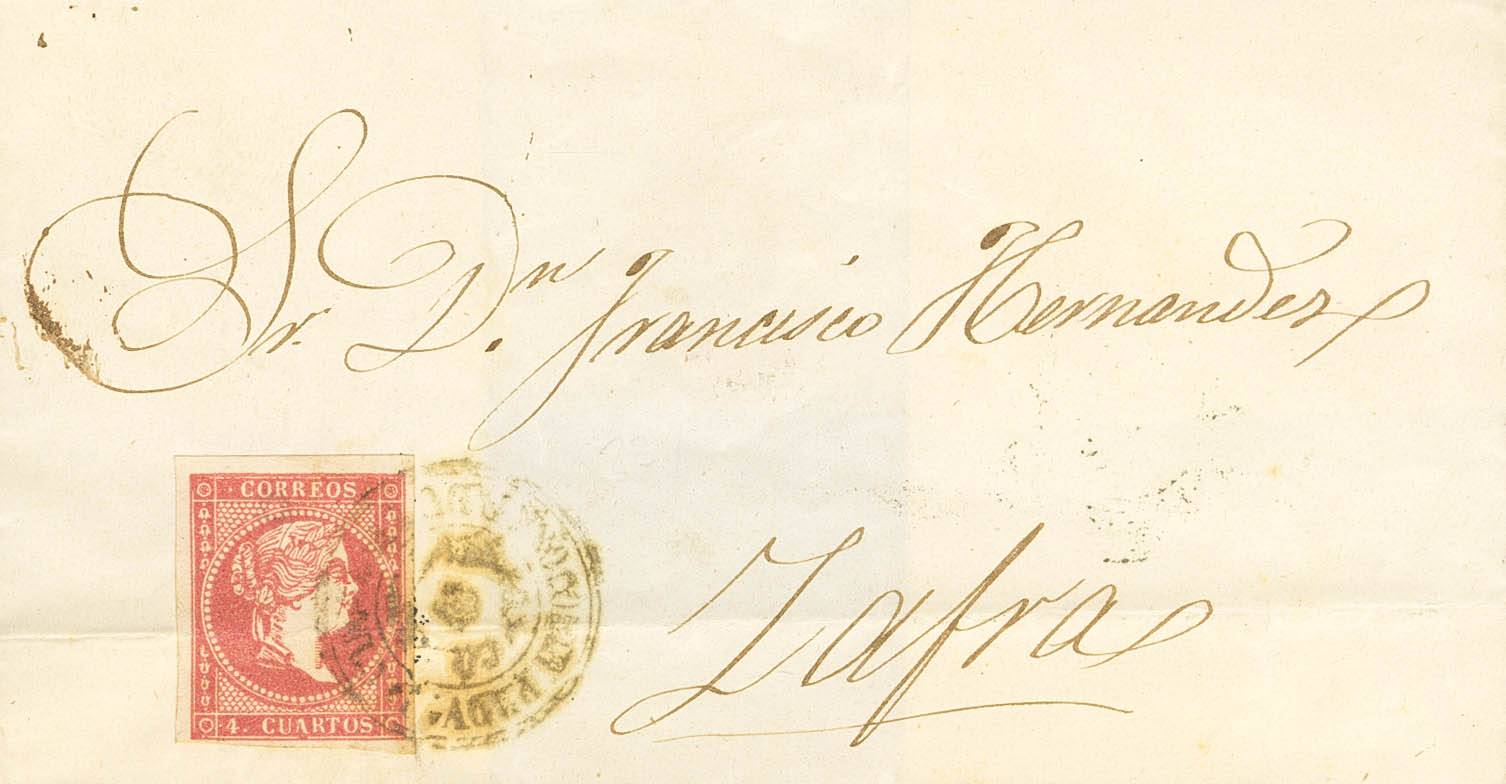 Sr. Dn. Francisco Hernandez
Zafra
CORREOS
4. CUARTOS